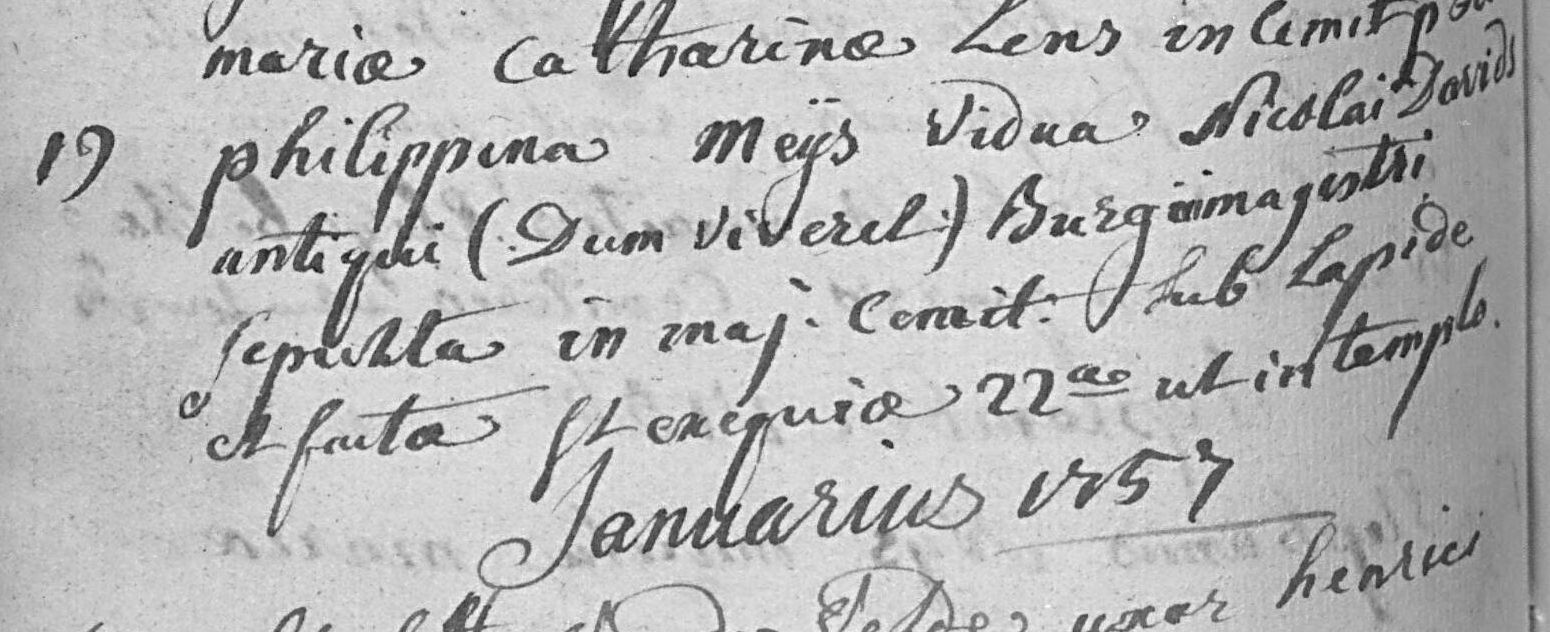 mariæ Catharinæ Lens in Cemit
19 philippina Meÿs Vidua Nicolai Davids
antiqui (Dum viveret) Burgimagistri
sepulta in maj. Cemit: sub lapide
et factæ st exequiæ 22æ ut in templo.
Januarius 1757
uxor henrici